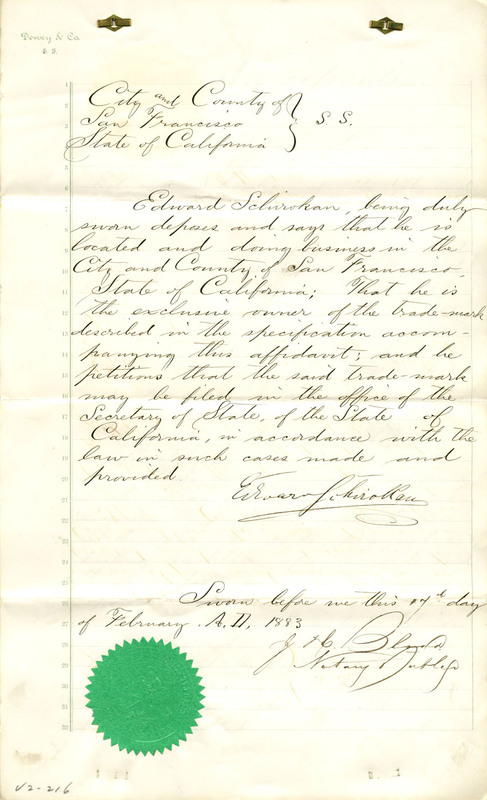 Dewey & Co.
S. F.
City and County of
San Francisco } S.S.
State of California
Edward Schirokau, being duly
sworn deposes and says that he is
located and doing business in the
City and County of San Francisco,
State of California; That he is
the exclusive owner of the trade-mark
described in the specification accom-
panying this affidavit; and he
petitions that the said trade-mark
may be filed in the office of the
Secretary of State, of the State of
California, in accordance with the
law in such cases made and
provided.
Edward Schirokau
Sworn before me this 17th day
of February A.D. 1883
Notary Public
V2-216